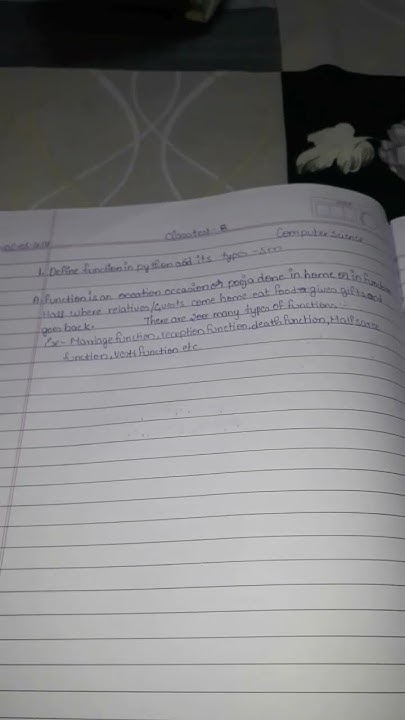 Classtest - 8
Computer science
1. Define function in python and its types - 5m
A. Function is an occation occasion or pooja done in home or in function
Hall where relatives/Guests come home eat food & given gifts and
goes back. There are many types of functions:-
Ex:- Marriage function, reception function, death function, Half saree
function, Voti function etc